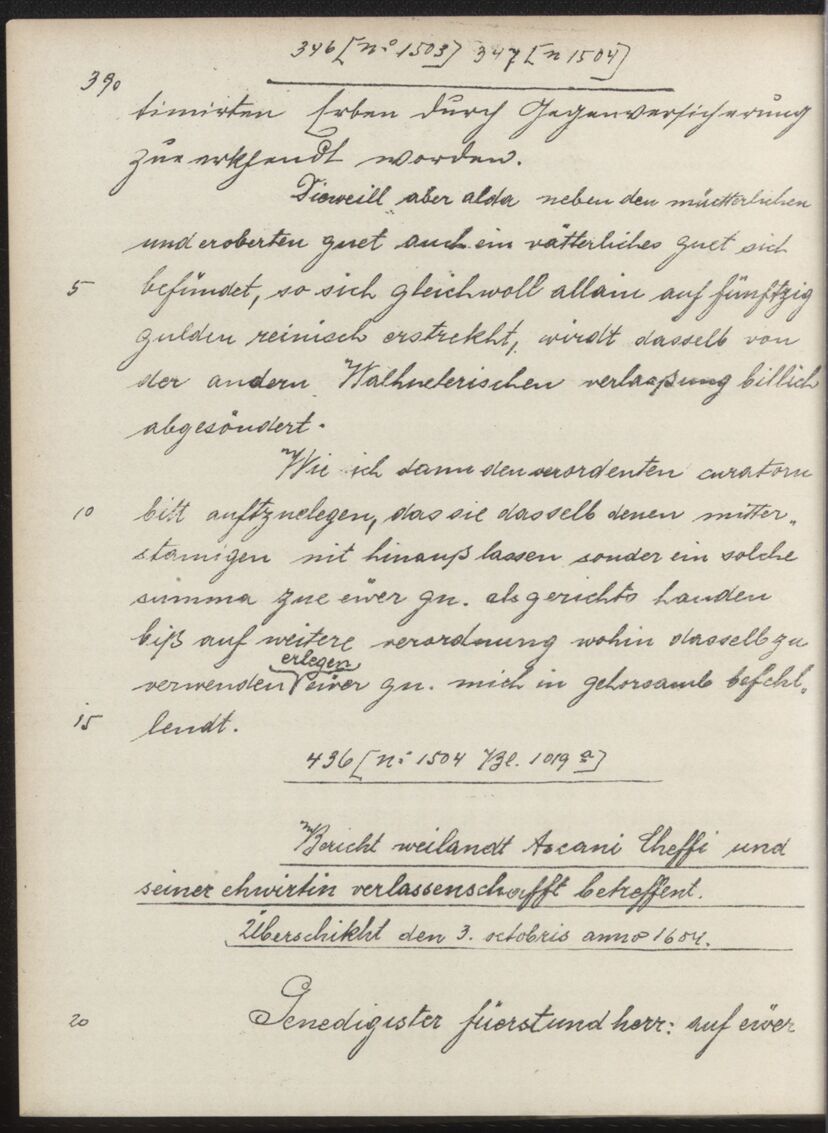 346 [n.º 1503] 347 [n 1504]
390
timirten Erben durch Gegenversicherung
zue erkhendt worden.
Dieweill aber alda neben den müetterlichen
und eroberten guet auch ein vätterliches guet sich
5 befündet, so sich gleichwoll allain auf fünftzig
gulden reinisch erstrekht, wirdt dasselb von
der andern verlaßung billich
abgesöndert.
Wie ich dann den verordenten curatorn
10 bitt aufzuelegen, das sie dasselb denen mitter„
stamigen nit hinauß lassen sonder ein solche
summa zue ewer gn. als gerichts handen
biß auf weitere verordnung wohin dasselb zu
verwenden erlegen ewer gn. mich in gehorsamb befehl„
15 lendt.
436 [n: 1504 Bl. 1019 a]
Bericht weilandt Ascani Cheffi und
seiner ehwirtin verlassenschafft betreffent.
Überschikht den 3. octobris anno 1604.
20 Genedigister füerst und herr: auf ewer